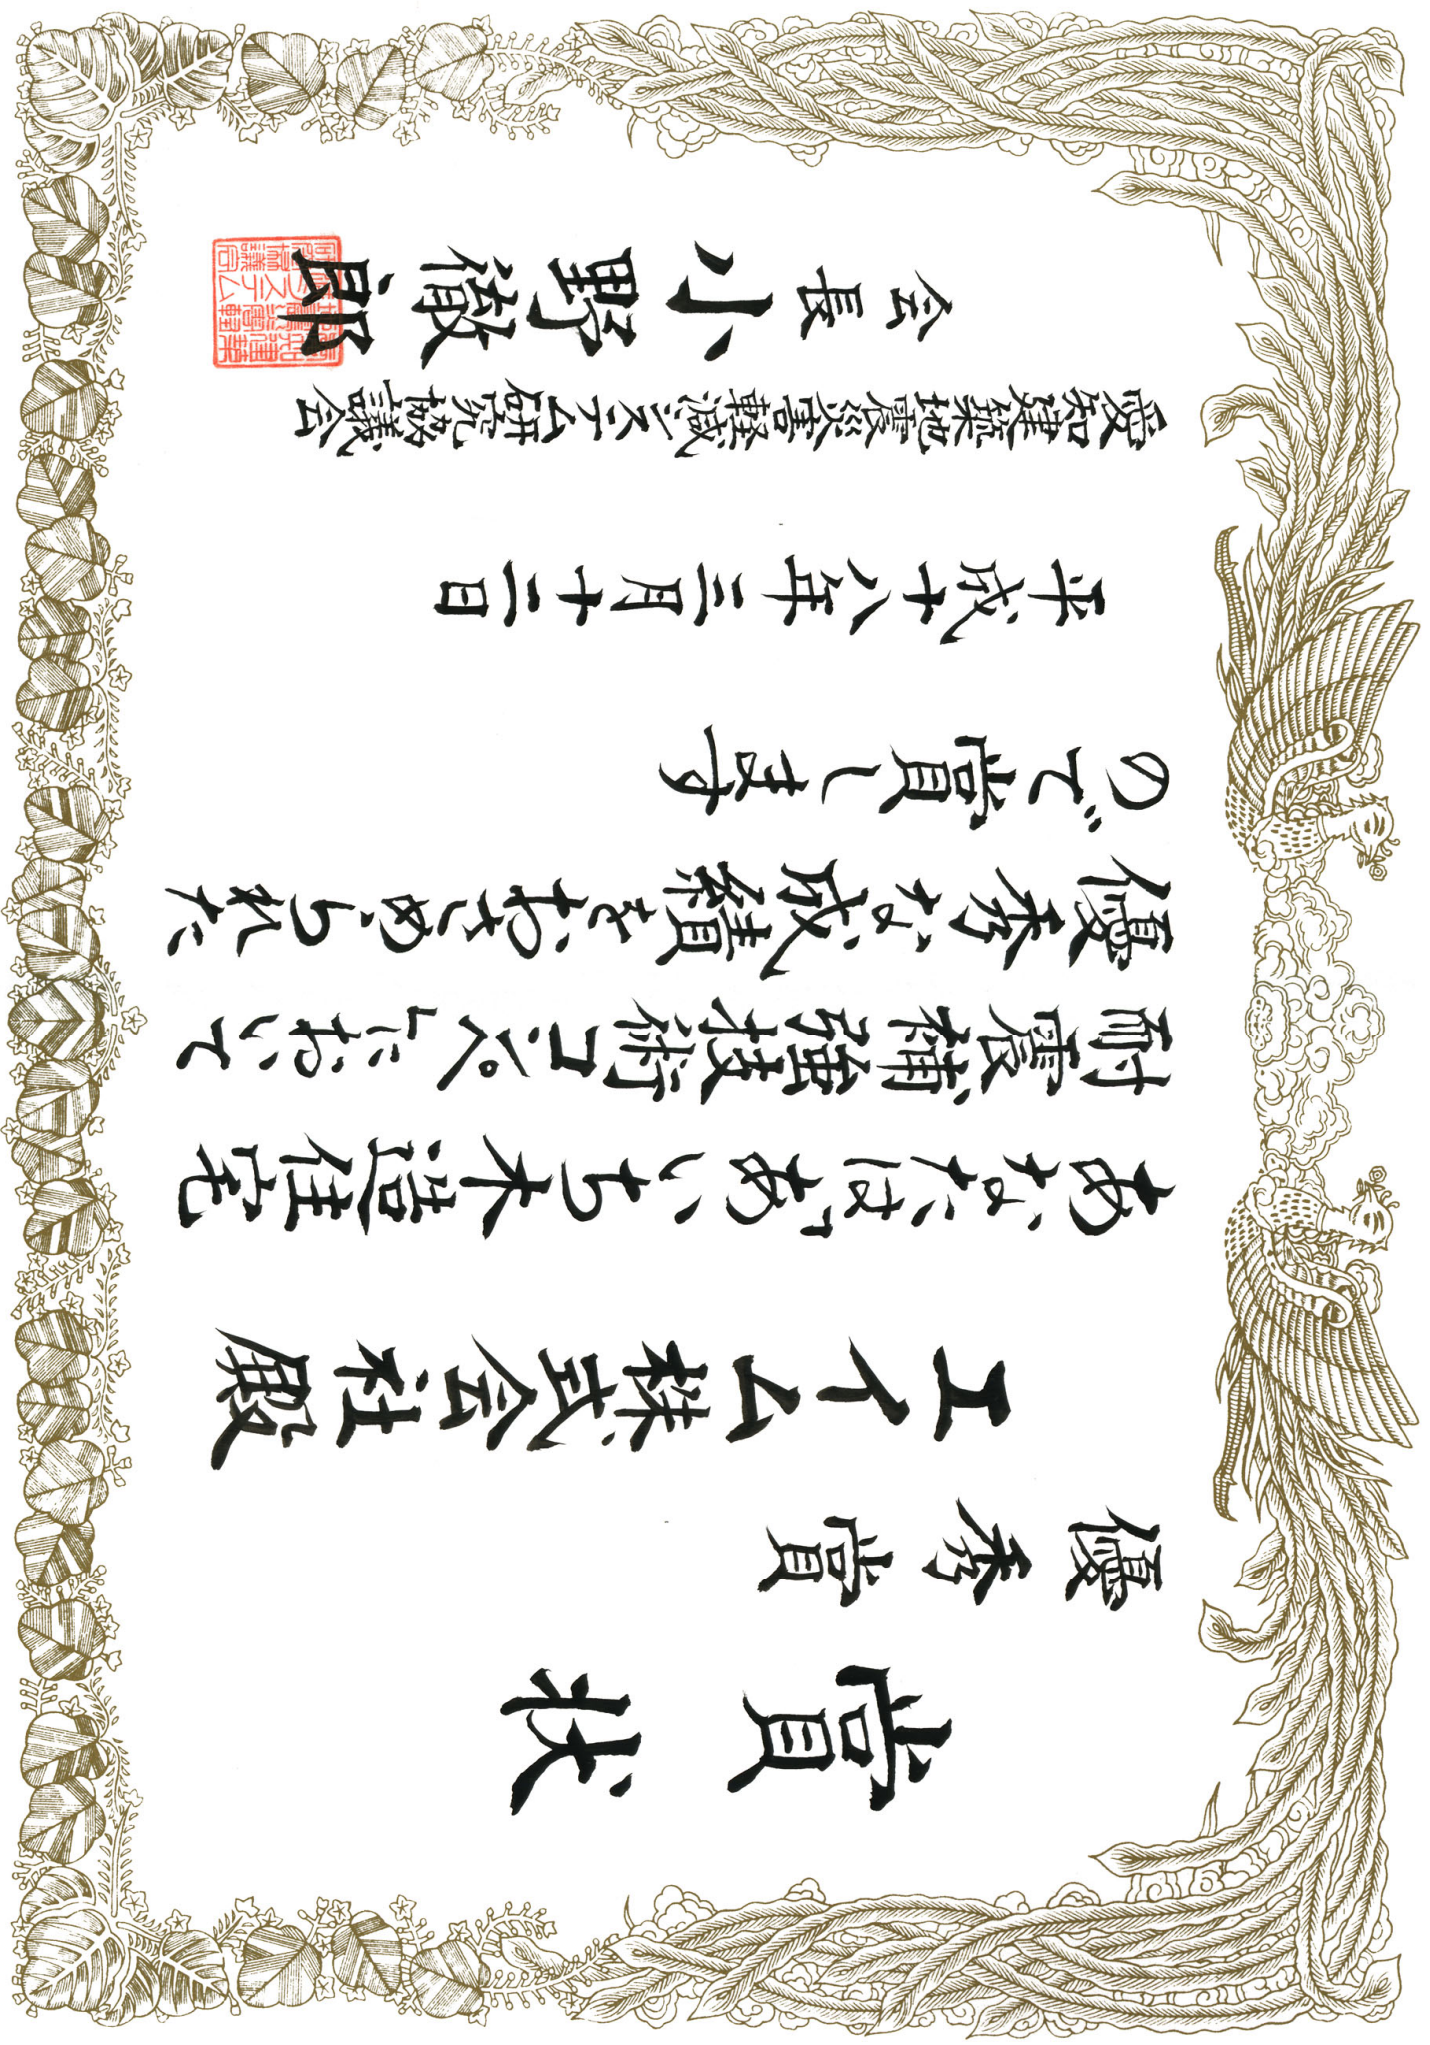 賞状
優秀賞
エイム株式会社殿
あなたはあいち木造住宅
耐震補強技術コンペにおいて
優秀な成績をおさめられた
ので賞します
平成十八年三月十二日
愛知建築地震災害軽減システム研究協議会
会長小野徹郎